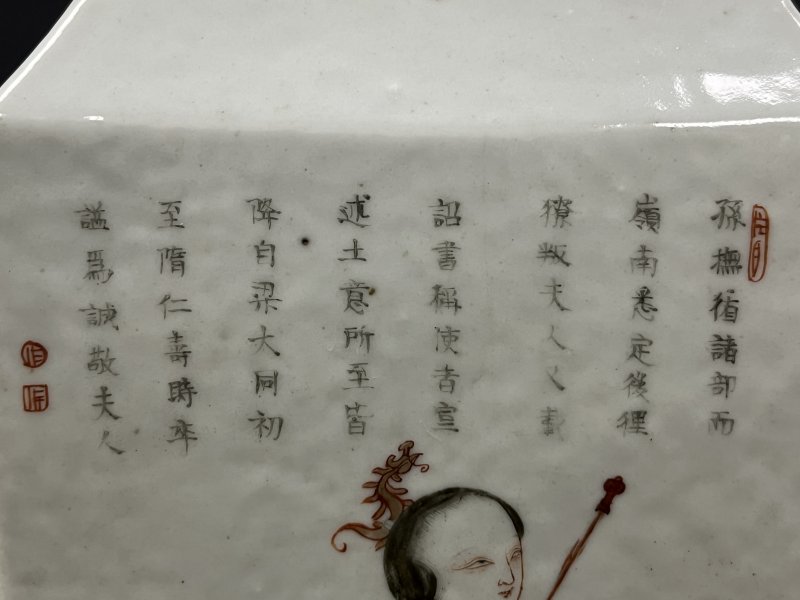 孫撫循諸部而
嶺南悉定後俚
獠叛夫人又載
詔書稱使者宣
述土意所至皆
降自梁大同初
至隋仁壽時卒
謚爲誠敬夫人